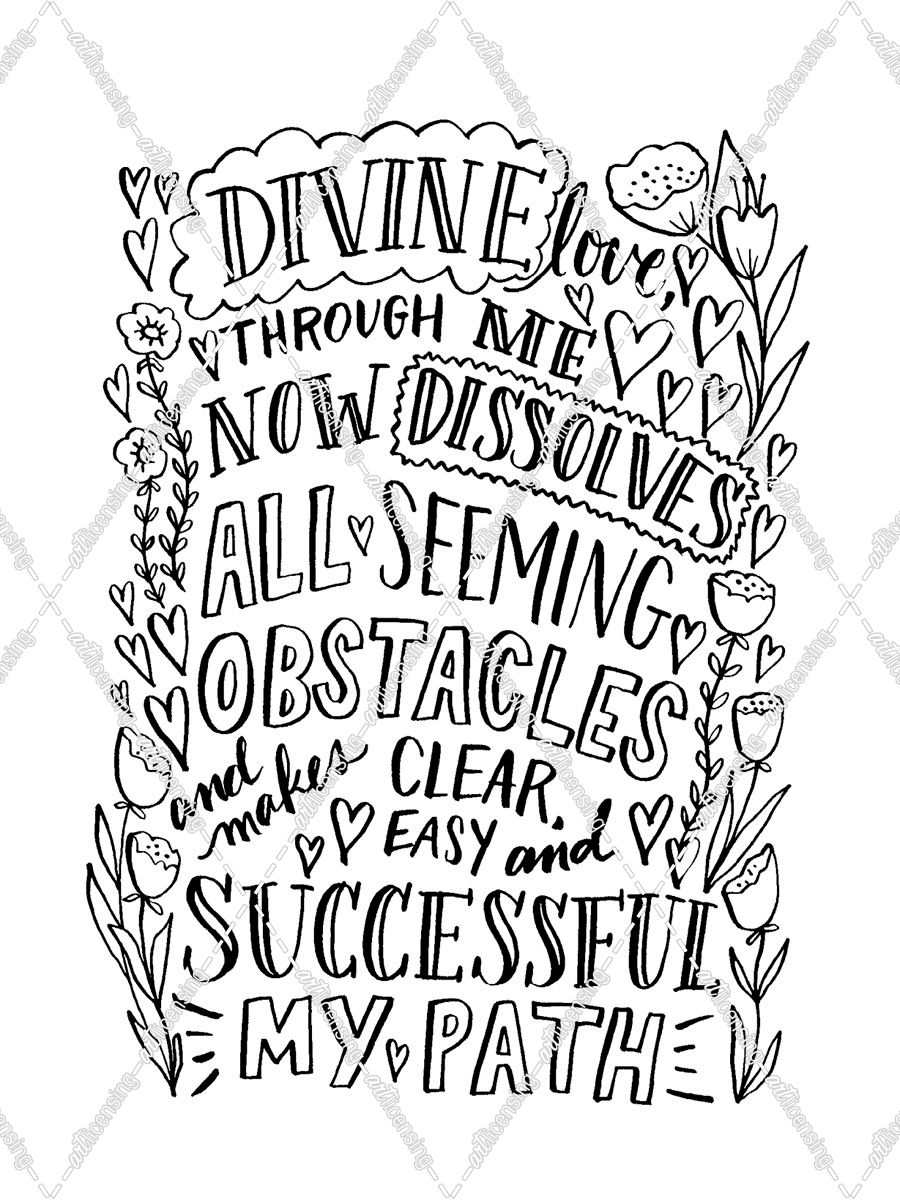 DIVINE love,
THROUGH ME
NOW DISSOLVES
ALL SEEMING
OBSTACLES
and makes CLEAR,
EASY and
SUCCESSFUL
MY PATH
artlicensing